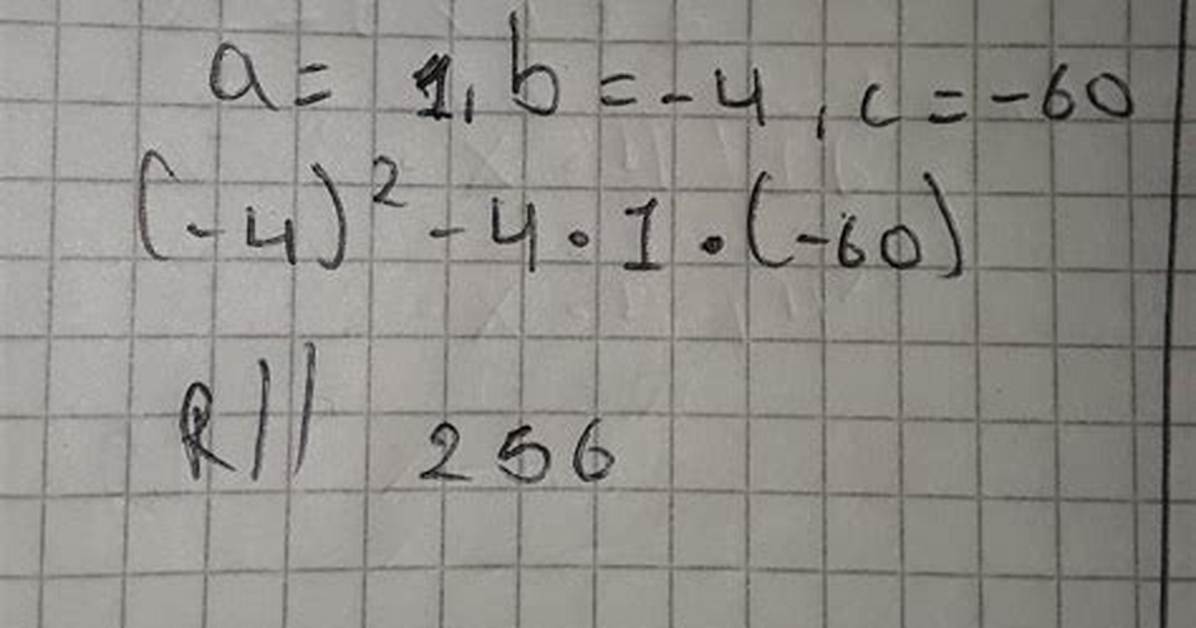 a = 1, b = -4, c = -60
(-4)² - 4 · 1 · (-60)
R// 256